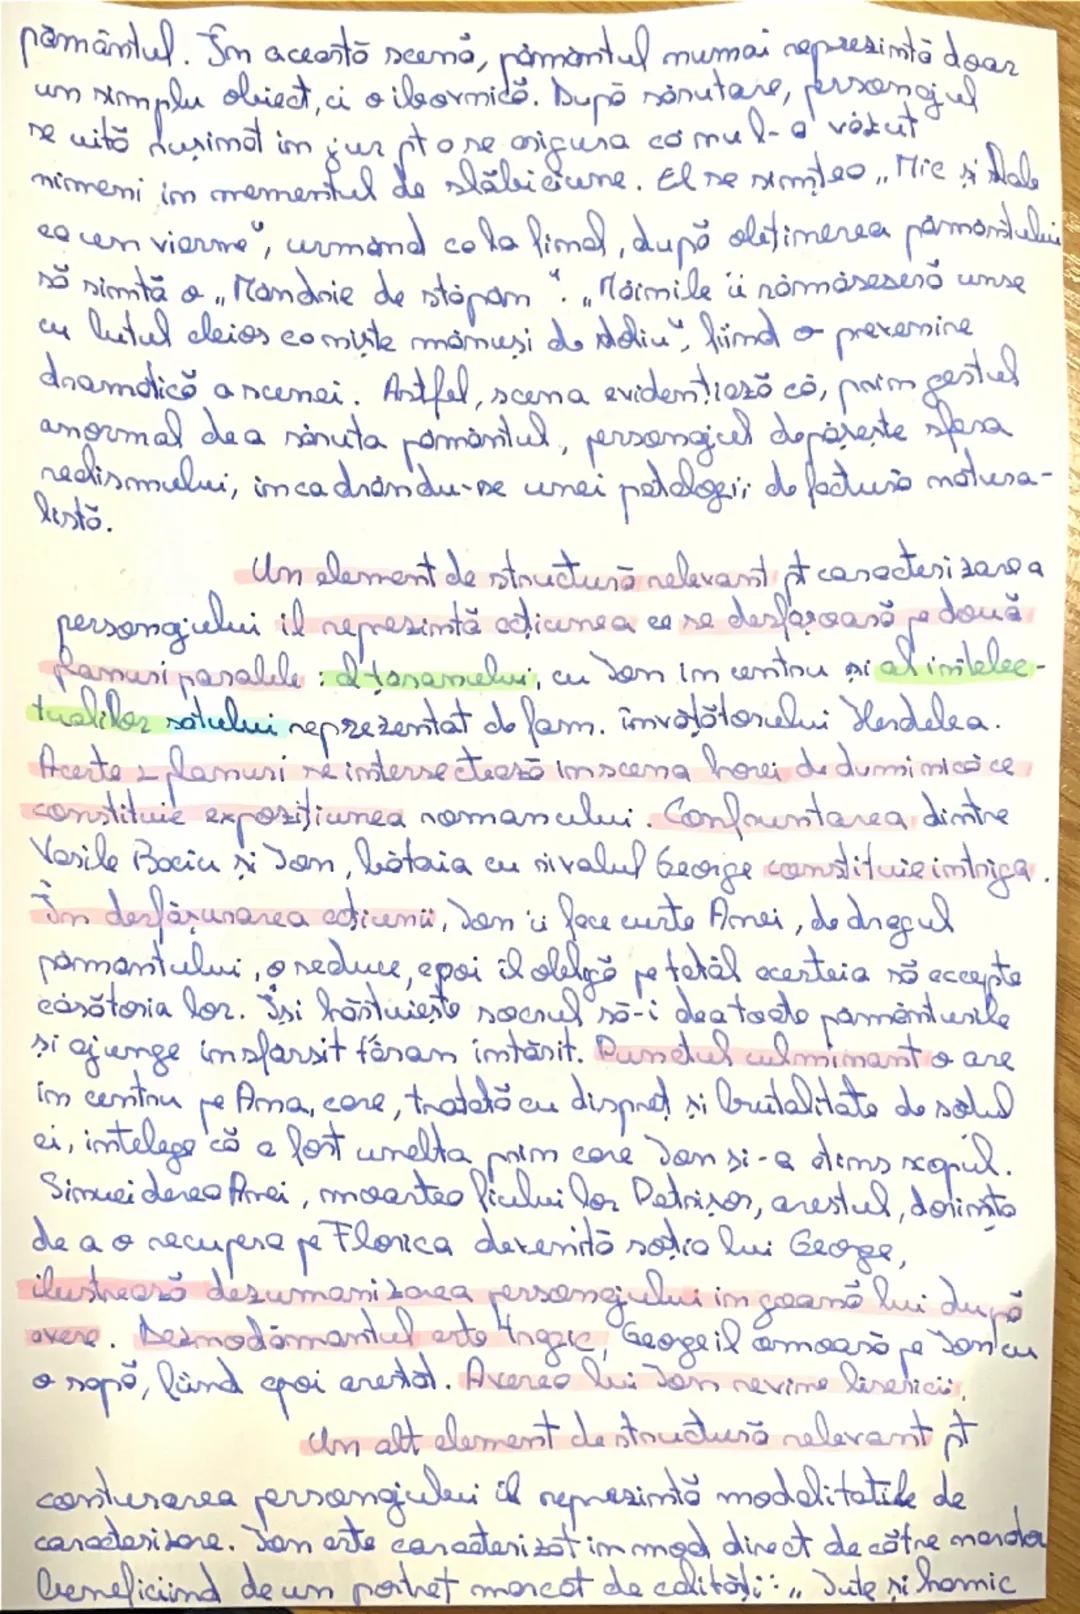 pământul. În această scenă, pământul numai reprezintă doar
un simplu obiect, ci o ibovnică. După sărutare, personajul
se uită rușinat în jur pt a se asigura că nu l-a văzut
nimeni în momentul de slăbiciune. El se simțea „Mic și slab
ca un vierme", urmând ca la final, după obținerea pământului
să simtă o „Mândrie de stăpân". „Mâinile îi rămăseseră unse
cu lutul cleios ca niște mănuși de doliu", fiind o prevenire
dramatică a scenei. Astfel, scena evidențiază că, prin gestul
anormal de a săruta pământul, personajul depășește sfera
realismului, încadrându-se unei patologii de factură natura-
listă.
Un element de structură relevant pt caracterizarea
personajului îl reprezintă acțiunea ce se desfășoară pe două
planuri paralele: al țăranului, cu Ion în centru și al intelec-
tualilor satului reprezentat de fam. învățătorului Herdelea.
Aceste 2 planuri se intersectează în scena horei de duminică ce
constituie expozițiunea romanului. Confruntarea dintre
Vasile Baciu și Ion, bătaia cu rivalul George constituie intriga.
În desfășurarea acțiunii, Ion îi face curte Anei, de dragul
pământului, o seduce, apoi îl obligă pe tatăl acesteia să accepte
căsătoria lor. Își hărțuiește socrul să-i dea toate pământurile
și ajunge în sfârșit țăran înstărit. Punctul culminant o are
în centru pe Ana, care, tratată cu dispreț și brutalitate de soțul
ei, înțelege că a fost unealta prin care Ion și-a atins scopul.
Sinuciderea Anei, moartea fiului lor Petrișor, arestul, dorința
de a o recupera pe Florica devenită soția lui George,
ilustrează dezumanizarea personajului în goană lui după
avere. Deznodământul este tragic, George îl omoară pe Ion cu
o sapă, fiind apoi arestat. Averea lui Ion revine bisericii.
Un alt element de structură relevant pt
conturarea personajului îl reprezintă modalitățile de
caracterizare. Ion este caracterizat în mod direct de către narator
beneficiind de un portret marcat de calități: „Iute și harnic